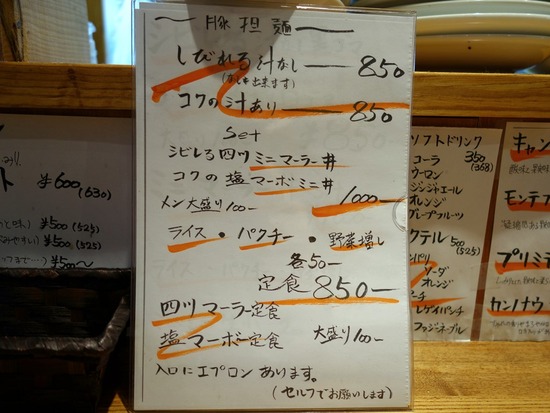 豚担麺
しびれる汁なし — 850
(なしも出来ます)
コクの汁あり — 850
Set
シビレる四川ミニマーラー丼
コクの塩マーボミニ丼
1000—
メン大盛り100—
ライス・パクチー・野菜増し
各50—
定食850—
四川マーラー定食
塩マーボー定食 大盛り100—
入口にエプロンあります。
(セルフでお願いします)
ト ¥600(630)
¥500(525)
¥500(525)
¥500〜
ソフトドリンク
コーラ 350(368)
ウーロン
ジンジャエール
オレンジ
グレープフルーツ
クテル 500(525)
ンパリ
ソーダ
オレンジ
ーチ
レゲイパンチ
ファジーネーブル
キャン
モンテプ
プリミテ
カンノナウ